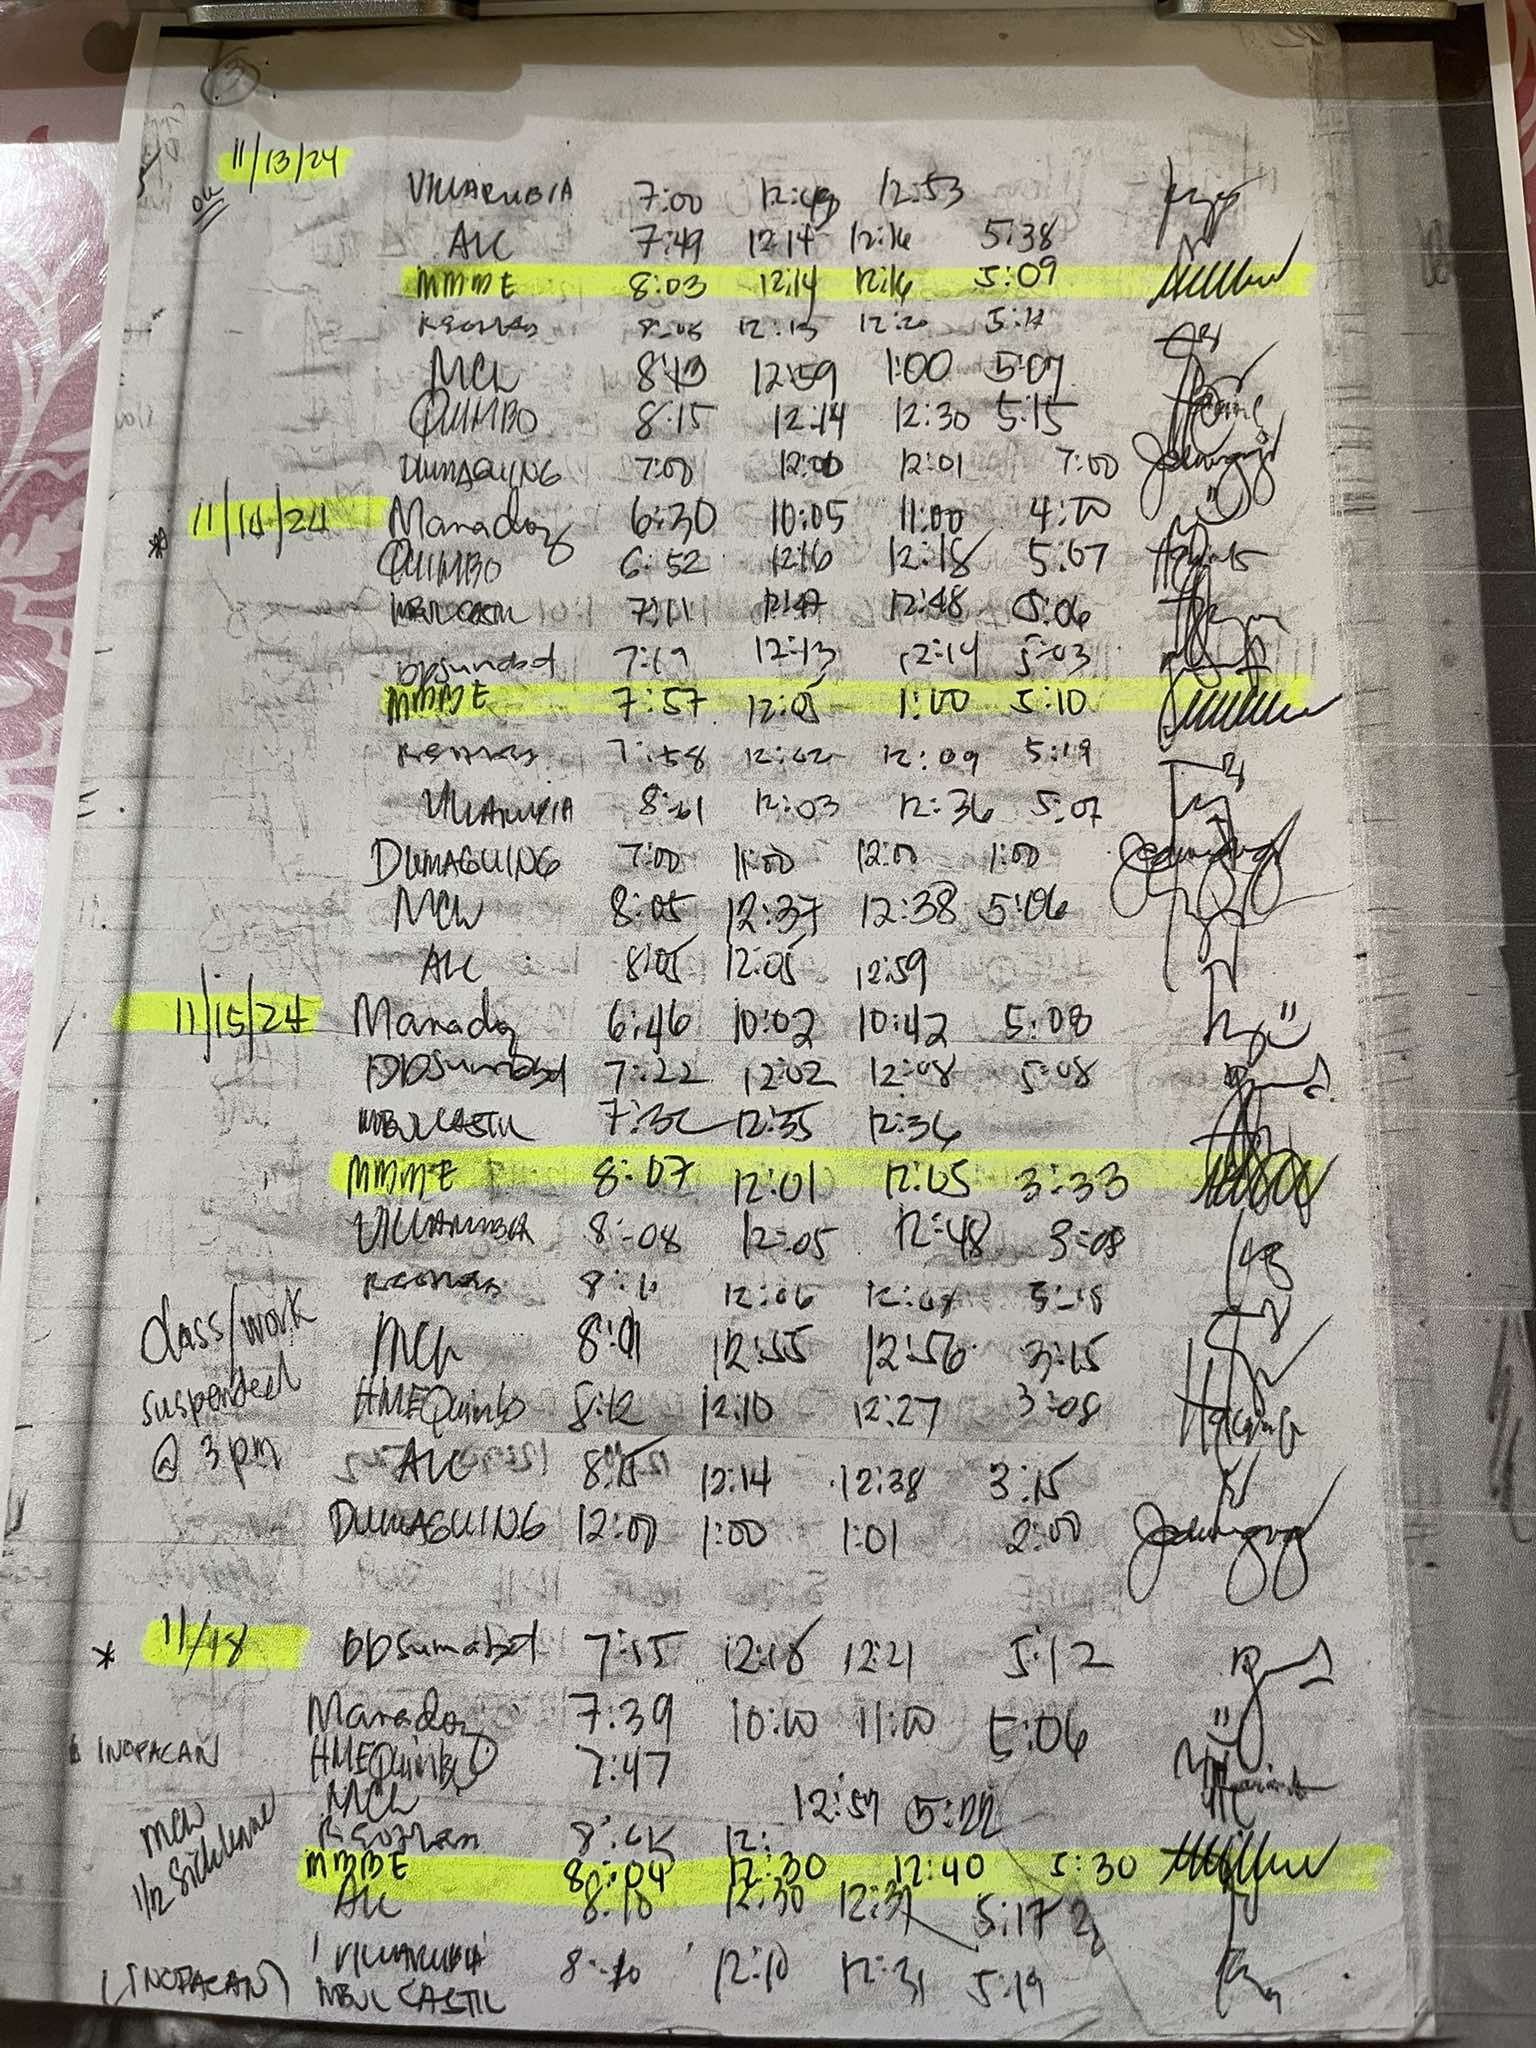 11/13/24
VILLARUBIA 7:00 12:49 12:53
ALC 7:49 12:14 12:16 5:38
MMME 8:03 12:14 12:16 5:09
12:20
MCL 8:13 12:59 1:00 5:07
QUIMBO 8:15 12:14 12:30 5:15
DUMAGUING 7:00 12:00 12:01 7:00
11/14/24 Manadog 6:30 10:05 11:00 4:00
QUIMBO 6:52 12:16 12:18 5:07
MBVL CASTIL 7:11 12:47 12:48 5:06
DDSumabat 7:19 12:13 12:14 5:03
MMME 7:57 12:05 1:00 5:10
7:58 12:02 12:09 5:19
VILLARUBIA 8:01 12:03 12:36 5:07
DUMAGUING 7:00 11:00 12:00 1:00
MCL 8:05 12:37 12:38 5:06
ALC 8:05 12:05 12:59
11/15/24 Manadog 6:46 10:02 10:42 5:08
DDSumabat 7:22 12:02 12:08 5:08
MBVL CASTIL 7:32 12:35 12:36
MMME 8:07 12:01 12:05 3:33
VILLARUBIA 8:08 12:05 12:48 3:08
8:10 12:06
class/work
suspended
@ 3 pm
MCL 8:01 12:55 12:56 3:15
HMEQuimbo 8:12 12:10 12:27 3:08
ALC 8:15 12:14 12:38 3:15
DUMAGUING 12:00 1:00 1:01 2:00
* 11/18 DDSumabat 7:15 12:18 12:21 5:12
Manadog 7:39 10:00 11:00 5:06
INOPACAN HMEQuimbo 7:47
MCL 12:57 5:22
MCL
1/2 Sick leave
12:
MMME 8:04 12:30 12:40 5:30
ALC 8:10 12:30 12:31 5:17
VILLARUBIA 8:10 12:10 12:31 5:19
(INOPACAN) MBVL CASTIL